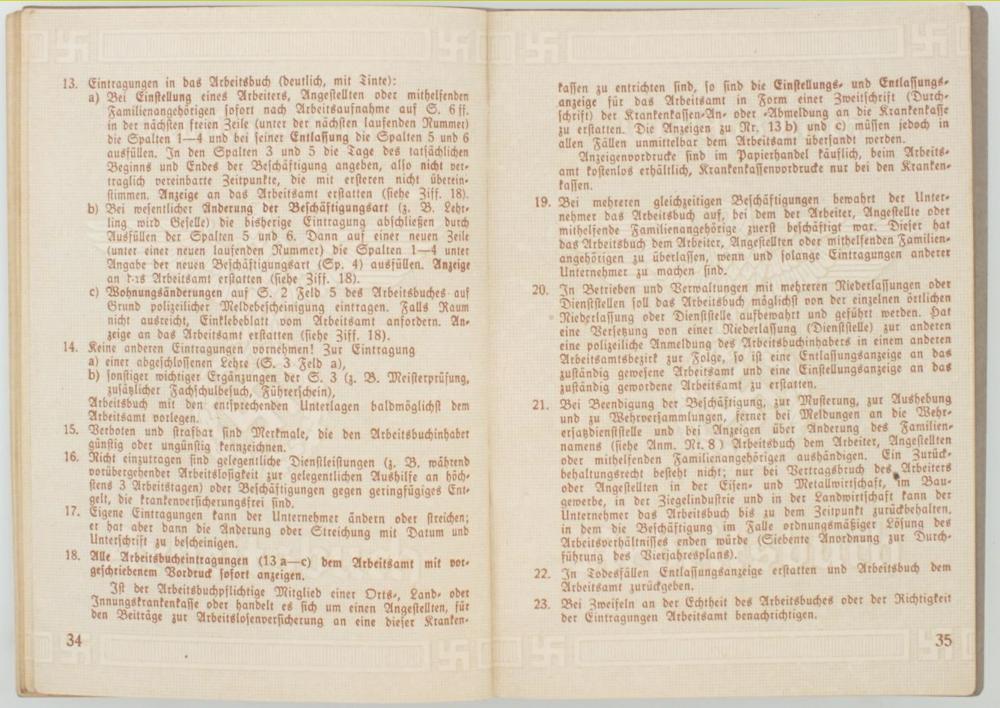 13. Eintragungen in das Arbeitsbuch (deutlich, mit Tinte):
a) Bei Einstellung eines Arbeiters, Angestellten oder mithelfenden
Familienangehörigen sofort nach Arbeitsaufnahme auf S. 6 ff.
in der nächsten freien Zeile (unter der nächsten laufenden Nummer)
die Spalten 1—4 und bei seiner Entlassung die Spalten 5 und 6
ausfüllen. In den Spalten 3 und 5 die Tage des tatsächlichen
Beginns und Endes der Beschäftigung angeben, also nicht ver-
traglich vereinbarte Zeitpunkte, die mit ersteren nicht überein-
stimmen. Anzeige an das Arbeitsamt erstatten (siehe Ziff. 18).
b) Bei wesentlicher Änderung der Beschäftigungsart (z. B. Lehr-
ling wird Geselle) die bisherige Eintragung abschließen durch
Ausfüllen der Spalten 5 und 6. Dann auf einer neuen Zeile
(unter einer neuen laufenden Nummer) die Spalten 1—4 unter
Angabe der neuen Beschäftigungsart (Sp. 4) ausfüllen. Anzeige
an das Arbeitsamt erstatten (siehe Ziff. 18).
c) Wohnungsänderungen auf S. 2 Feld 5 des Arbeitsbuches auf
Grund polizeilicher Meldebescheinigung eintragen. Falls Raum
nicht ausreicht, Einklebeblatt vom Arbeitsamt anfordern. An-
zeige an das Arbeitsamt erstatten (siehe Ziff. 18).
14. Keine anderen Eintragungen vornehmen! Zur Eintragung
a) einer abgeschlossenen Lehre (S. 3 Feld a),
b) sonstiger wichtiger Ergänzungen der S. 3 (z. B. Meisterprüfung,
zusätzlicher Fachschulbesuch, Führerschein),
Arbeitsbuch mit den entsprechenden Unterlagen baldmöglichst dem
Arbeitsamt vorlegen.
15. Verboten und strafbar sind Merkmale, die den Arbeitsbuchinhaber
günstig oder ungünstig kennzeichnen.
16. Nicht einzutragen sind gelegentliche Dienstleistungen (z. B. während
vorübergehender Arbeitslosigkeit zur gelegentlichen Aushilfe an höch-
stens 3 Arbeitstagen) oder Beschäftigungen gegen geringfügiges Ent-
gelt, die krankenversicherungsfrei sind.
17. Eigene Eintragungen kann der Unternehmer ändern oder streichen;
er hat aber dann die Änderung oder Streichung mit Datum und
Unterschrift zu bescheinigen.
18. Alle Arbeitsbucheintragungen (13 a—c) dem Arbeitsamt mit vor-
geschriebenem Vordruck sofort anzeigen.
Ist der Arbeitsbuchpflichtige Mitglied einer Orts-, Land- oder
Innungskrankenkasse oder handelt es sich um einen Angestellten, für
den Beiträge zur Arbeitslosenversicherung an eine dieser Kranken-
34
kassen zu entrichten sind, so sind die Einstellungs- und Entlassungs-
anzeige für das Arbeitsamt in Form einer Zweitschrift (Durch-
schrift) der Krankenkassen-An- oder -Abmeldung an die Krankenkasse
zu erstatten. Die Anzeigen zu Nr. 13 b) und c) müssen jedoch in
allen Fällen unmittelbar dem Arbeitsamt übersandt werden.
Anzeigenvordrucke sind im Papierhandel käuflich, beim Arbeits-
amt kostenlos erhältlich, Krankenkassenvordrucke nur bei den Kranken-
kassen.
19. Bei mehreren gleichzeitigen Beschäftigungen bewahrt der Unter-
nehmer das Arbeitsbuch auf, bei dem der Arbeiter, Angestellte oder
mithelfende Familienangehörige zuerst beschäftigt war. Dieser hat
das Arbeitsbuch dem Arbeiter, Angestellten oder mithelfenden Familien-
angehörigen zu überlassen, wenn und solange Eintragungen anderer
Unternehmer zu machen sind.
20. In Betrieben und Verwaltungen mit mehreren Niederlassungen oder
Dienststellen soll das Arbeitsbuch möglichst von der einzelnen örtlichen
Niederlassung oder Dienststelle aufbewahrt und geführt werden. Hat
eine Versetzung von einer Niederlassung (Dienststelle) zur anderen
eine polizeiliche Anmeldung des Arbeitsbuchinhabers in einem anderen
Arbeitsamtsbezirk zur Folge, so ist eine Entlassungsanzeige an das
zuständig gewesene Arbeitsamt und eine Einstellungsanzeige an das
zuständig gewordene Arbeitsamt zu erstatten.
21. Bei Beendigung der Beschäftigung, zur Musterung, zur Aushebung
und zu Wehrversammlungen, ferner bei Meldungen an die Wehr-
ersatzdienststelle und bei Anzeigen über Änderung des Familien-
namens (siehe Anm. Nr. 8) Arbeitsbuch dem Arbeiter, Angestellten
oder mithelfenden Familienangehörigen aushändigen. Ein Zurück-
behaltungsrecht besteht nicht; nur bei Vertragsbruch des Arbeiters
oder Angestellten in der Eisen- und Metallwirtschaft, im Bau-
gewerbe, in der Ziegelindustrie und in der Landwirtschaft kann der
Unternehmer das Arbeitsbuch bis zu dem Zeitpunkt zurückbehalten,
in dem die Beschäftigung im Falle ordnungsmäßiger Lösung des
Arbeitsverhältnisses enden würde (Siebente Anordnung zur Durch-
führung des Vierjahresplans).
22. In Todesfällen Entlassungsanzeige erstatten und Arbeitsbuch dem
Arbeitsamt zurückgeben.
23. Bei Zweifeln an der Echtheit des Arbeitsbuches oder der Richtigkeit
der Eintragungen Arbeitsamt benachrichtigen.
35